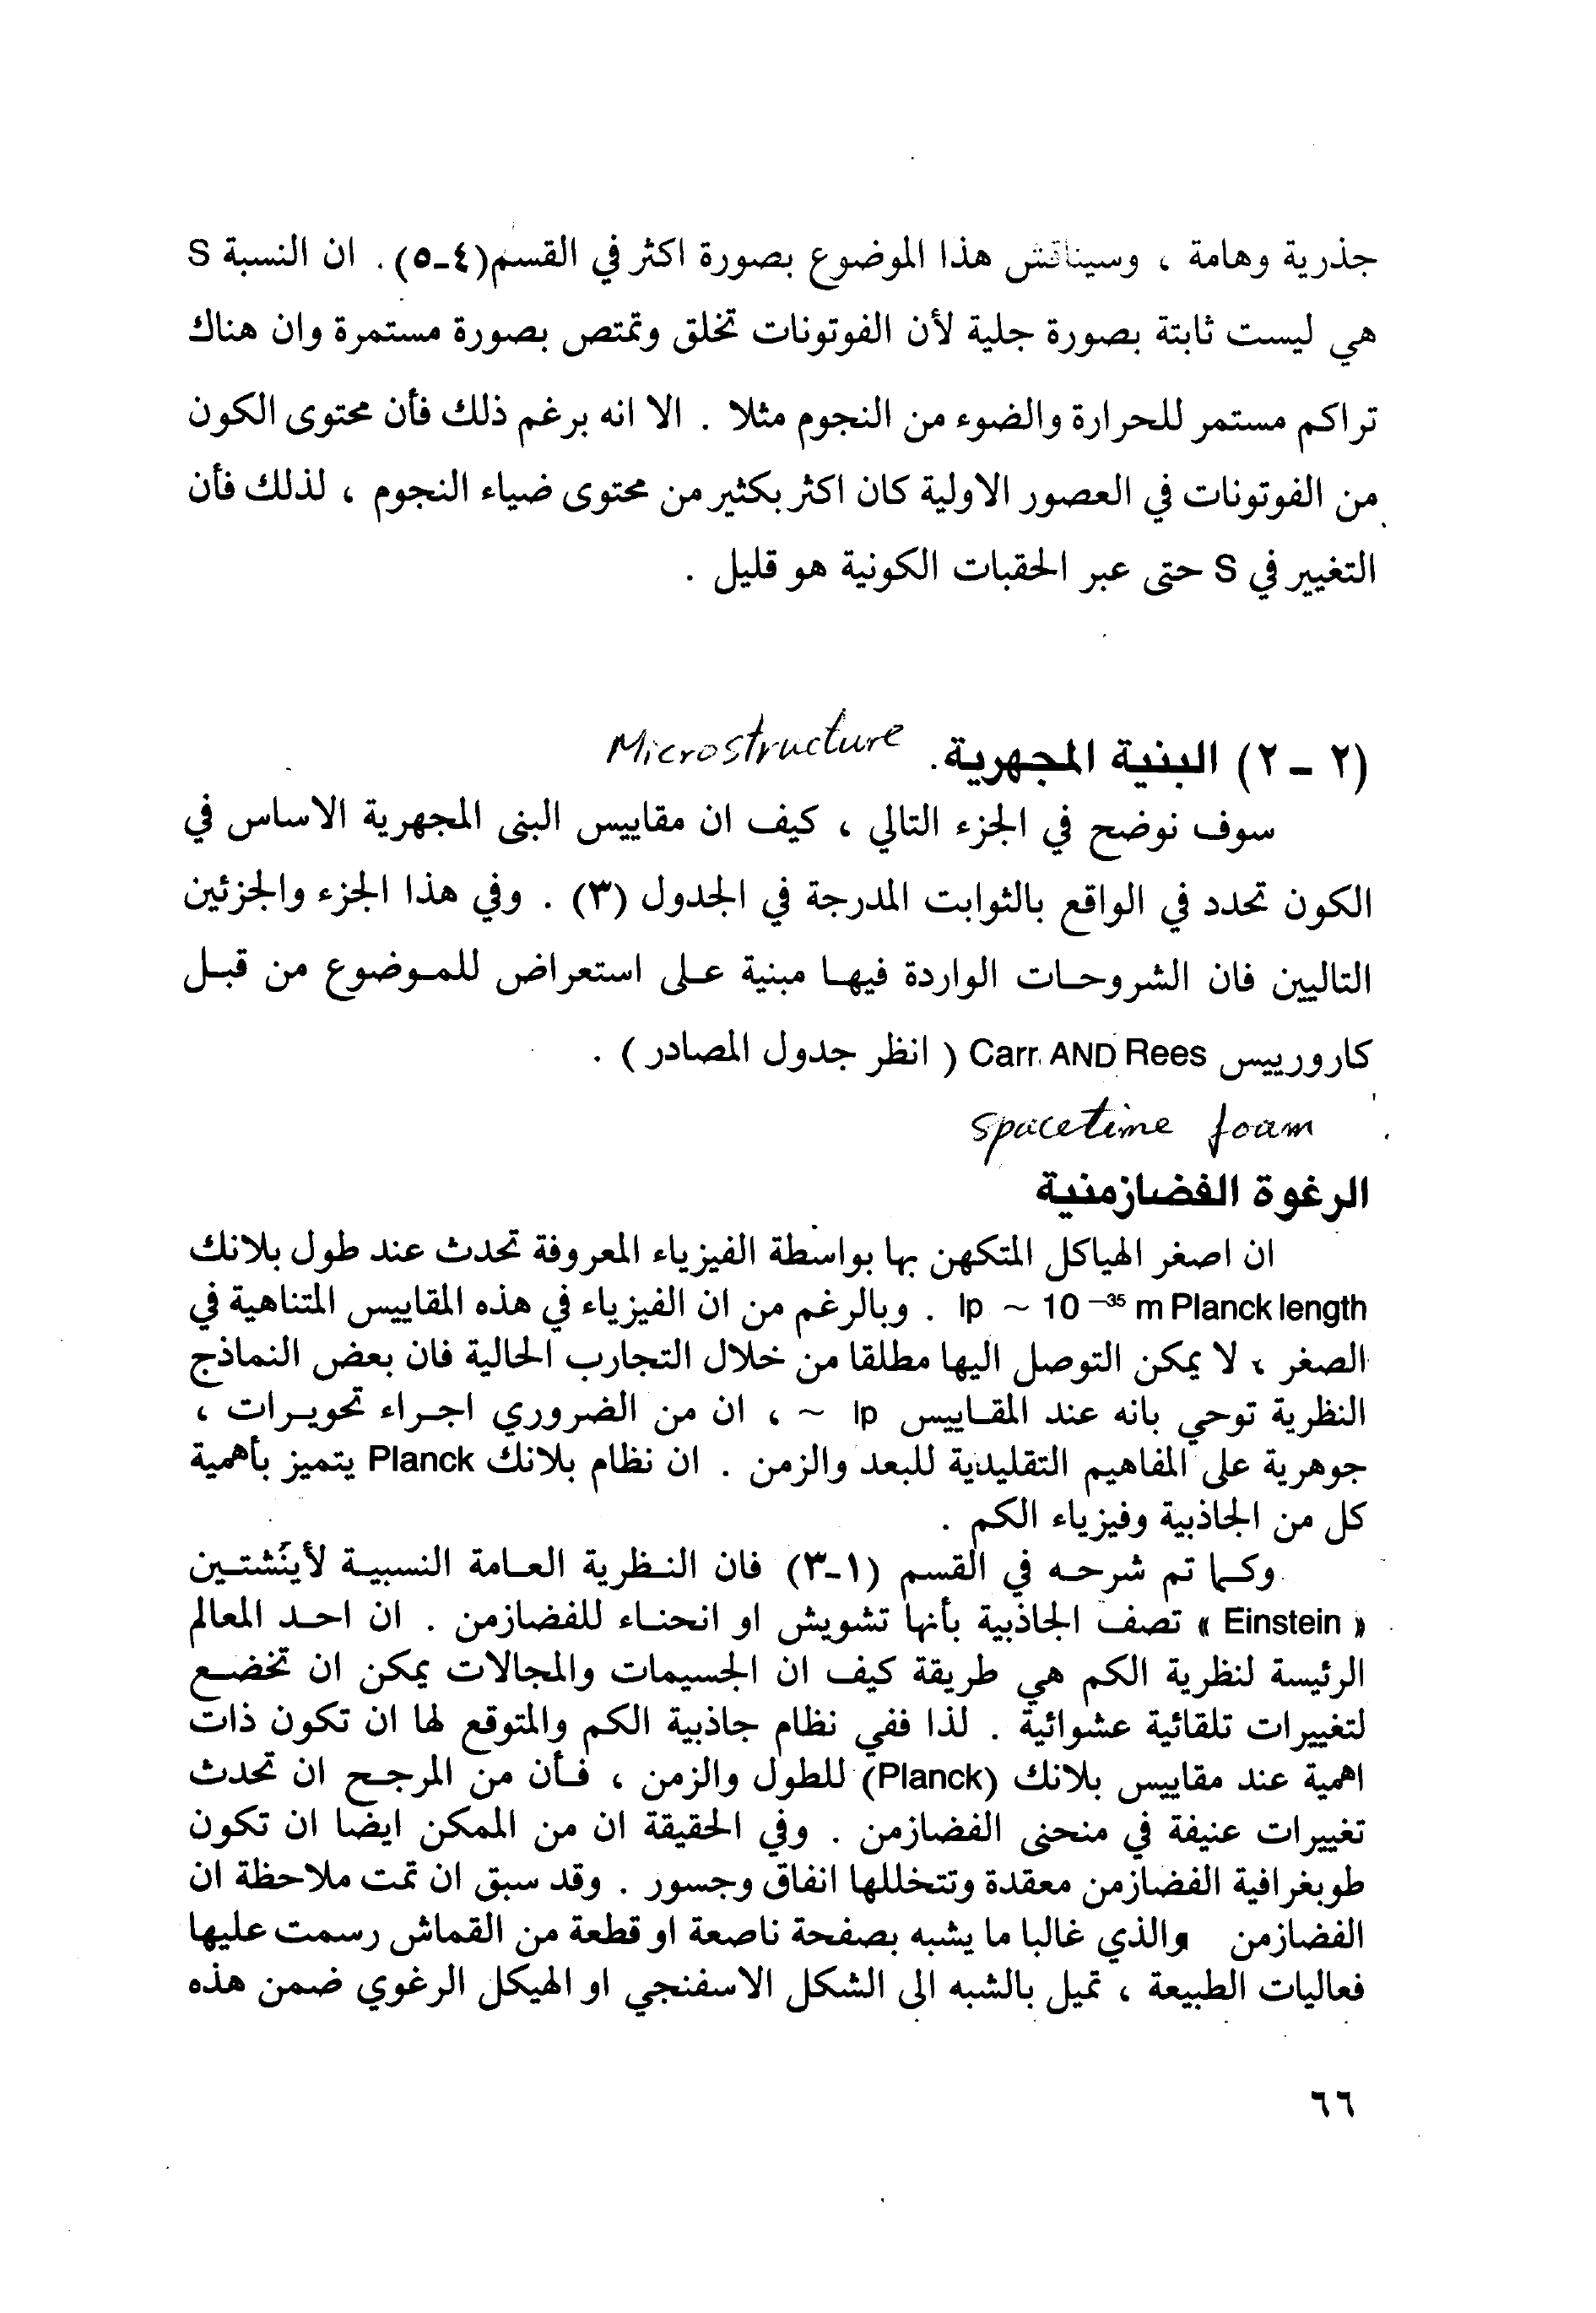 جذرية وهامة ، وسيناقش هذا الموضوع بصورة اكثر في القسم(٤ـ٥) . ان النسبة S
هي ليست ثابتة بصورة جلية لأن الفوتونات تخلق وتمتص بصورة مستمرة وان هناك
تراكم مستمر للحرارة والضوء من النجوم مثلا . الا انه برغم ذلك فأن محتوى الكون
من الفوتونات في العصور الاولية كان اكثر بكثير من محتوى ضياء النجوم ، لذلك فأن
التغيير في S حتى عبر الحقبات الكونية هو قليل .
(٢ ـ ٢) البنية المجهرية. Microstructure
سوف نوضح في الجزء التالي ، كيف ان مقاييس البنى المجهرية الاساس في
الكون تحدد في الواقع بالثوابت المدرجة في الجدول (٣) . وفي هذا الجزء والجزئين
التاليين فان الشروحات الواردة فيها مبنية على استعراض للموضوع من قبل
كارورييس Carr. AND Rees ( انظر جدول المصادر ) .
spacetime foam
الرغوة الفضازمنية
ان اصغر الهياكل المتكهن بها بواسطة الفيزياء المعروفة تحدث عند طول بلانك
lp ~ 10 –35 m Planck length . وبالرغم من ان الفيزياء في هذه المقاييس المتناهية في
الصغر ، لا يمكن التوصل اليها مطلقا من خلال التجارب الحالية فان بعض النماذج
النظرية توحي بانه عند المقاييس lp ~ ، ان من الضروري اجراء تحويرات ،
جوهرية على المفاهيم التقليدية للبعد والزمن . ان نظام بلانك Planck يتميز بأهمية
كل من الجاذبية وفيزياء الكم .
وكما تم شرحه في القسم (١ـ٣) فان النظرية العامة النسبية لأينشتين
« Einstein » تصف الجاذبية بأنها تشويش او انحناء للفضازمن . ان احد المعالم
الرئيسة لنظرية الكم هي طريقة كيف ان الجسيمات والمجالات يمكن ان تخضع
لتغييرات تلقائية عشوائية . لذا ففي نظام جاذبية الكم والمتوقع لها ان تكون ذات
اهمية عند مقاييس بلانك (Planck) للطول والزمن ، فأن من المرجح ان تحدث
تغييرات عنيفة في منحنى الفضازمن . وفي الحقيقة ان من الممكن ايضا ان تكون
طوبغرافية الفضازمن معقدة وتتخللها انفاق وجسور . وقد سبق ان تمت ملاحظة ان
الفضازمن والذي غالبا ما يشبه بصفحة ناصعة او قطعة من القماش رسمت عليها
فعاليات الطبيعة ، تميل بالشبه الى الشكل الاسفنجي او الهيكل الرغوي ضمن هذه
٦٦